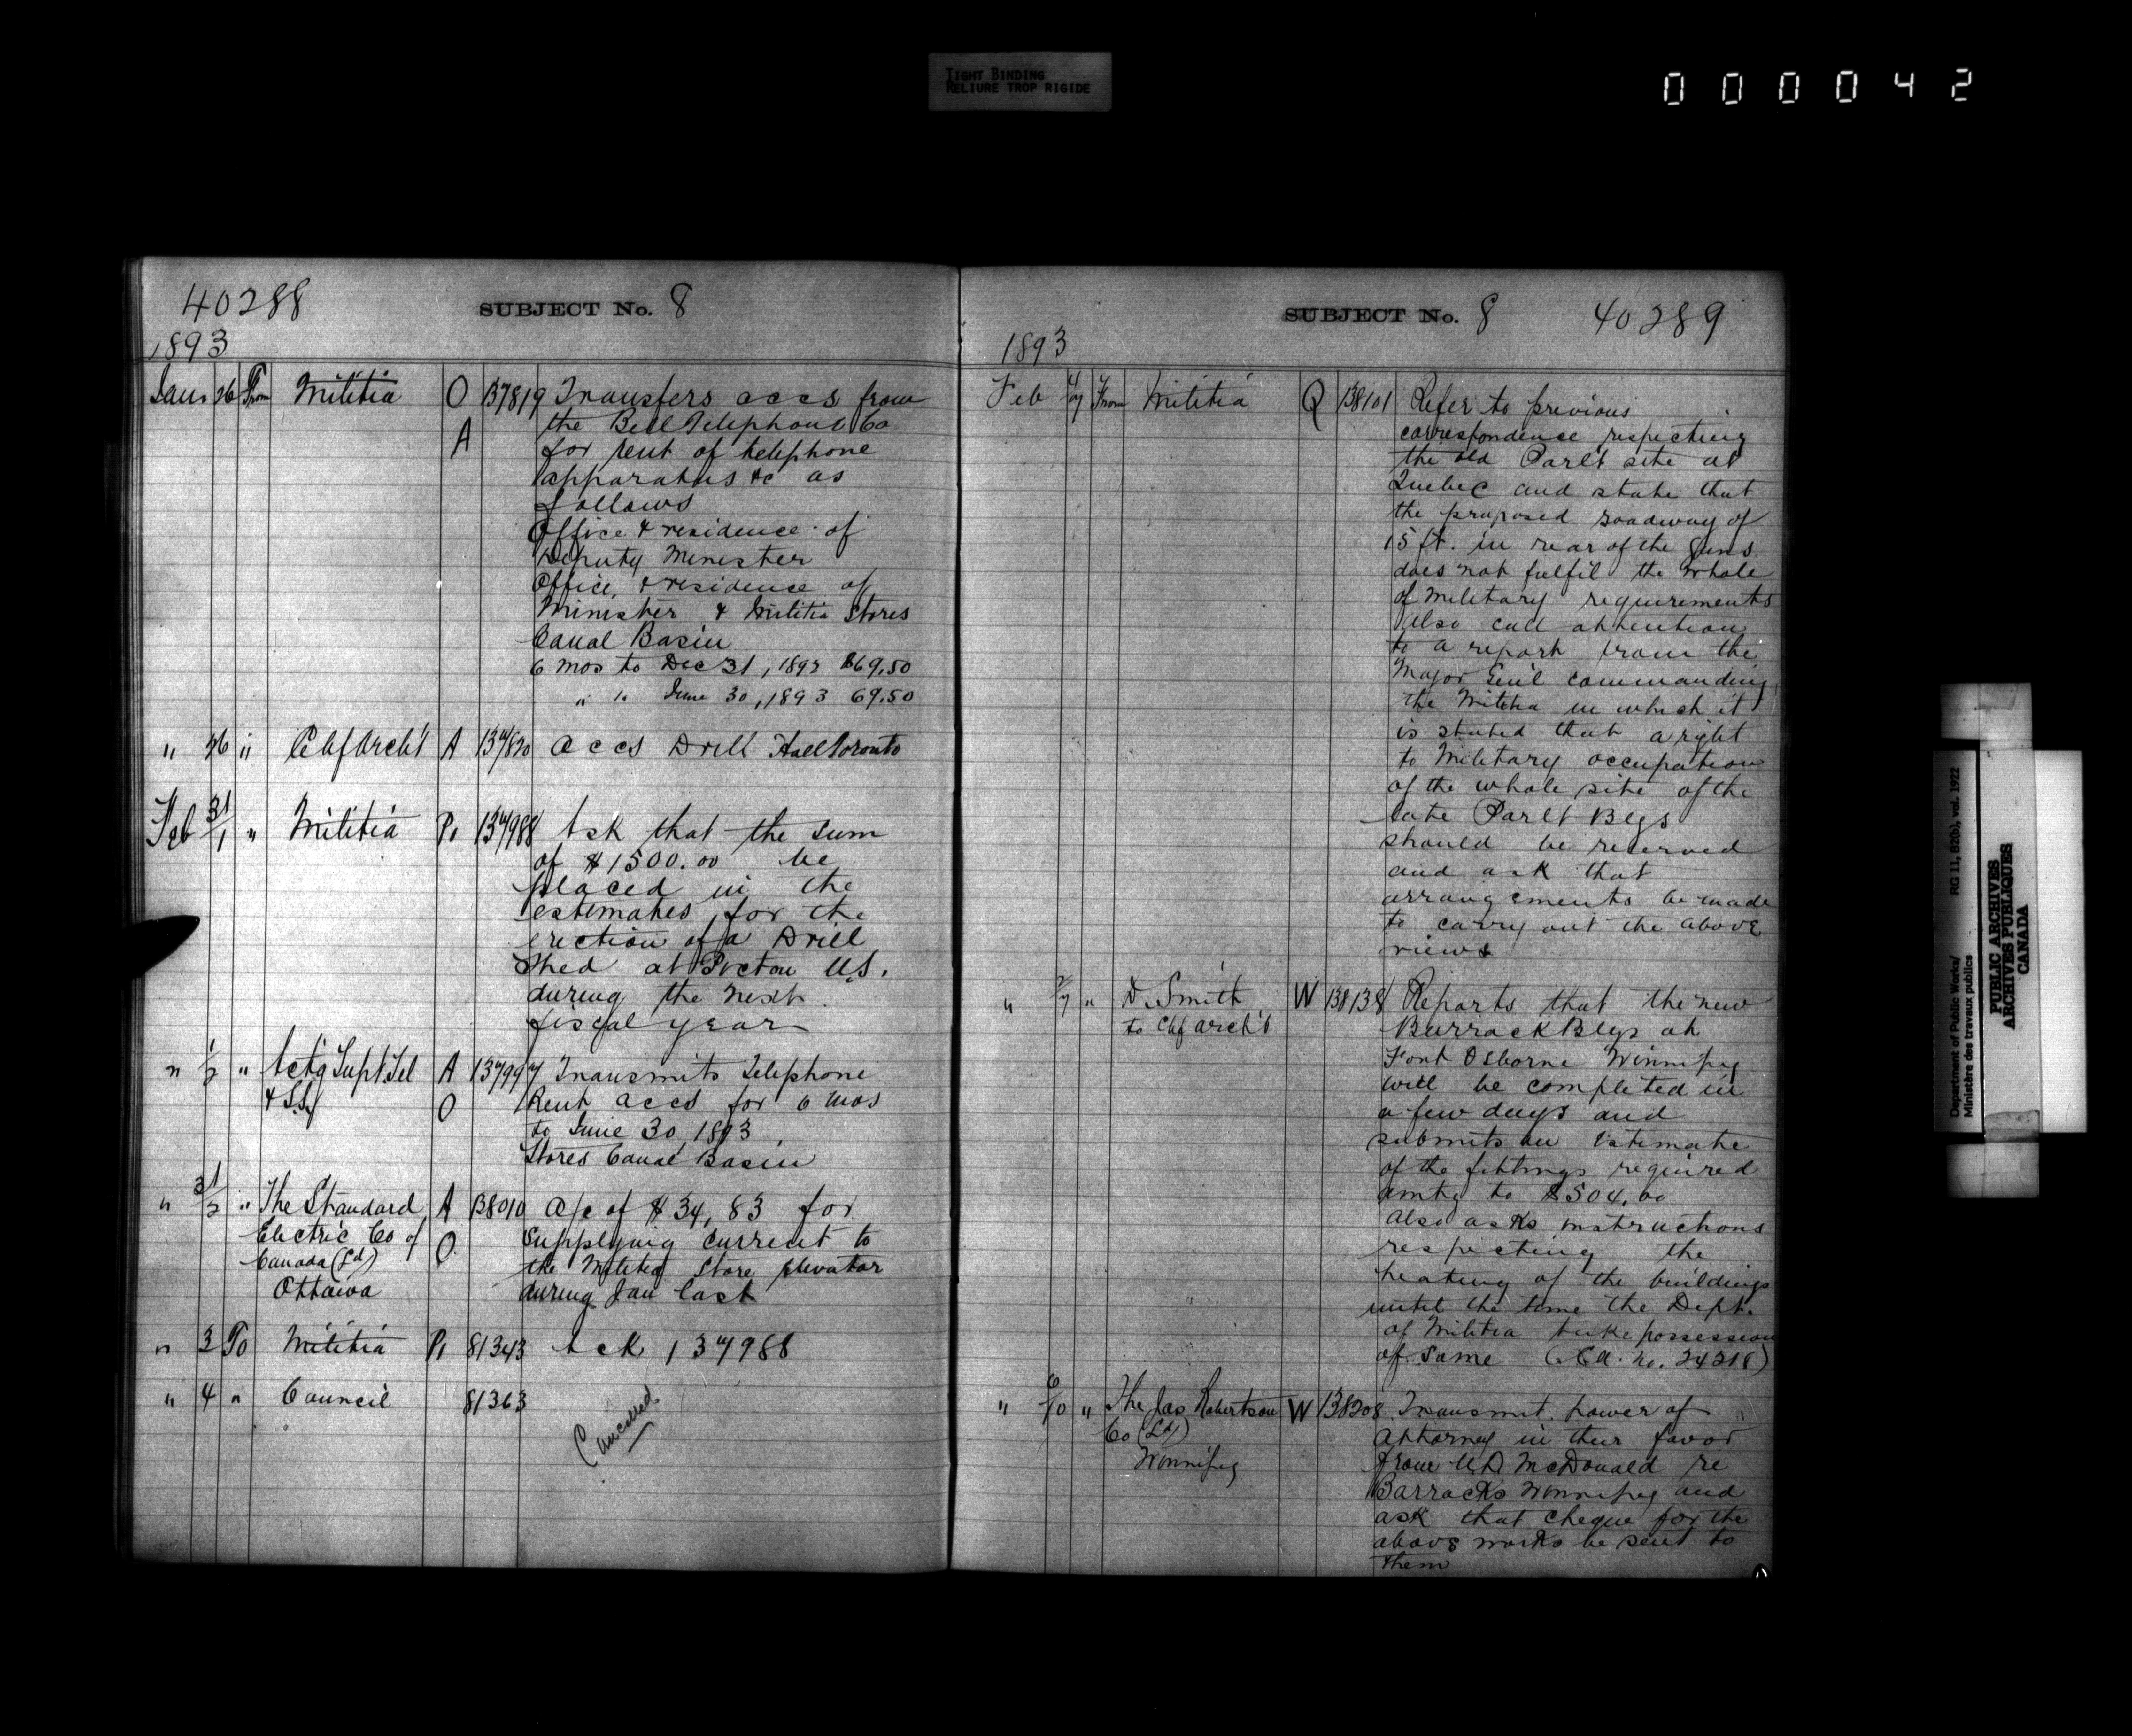 TIGHT BINDING
RELIURE TROP RIGIDE
000042
40288
SUBJECT No. 8
1893
Jan 26 From Militia O 137819 Transfers accs from
A the Bell Telephone Co
for rent of telephone
apparatus &c as
follows
Office & residence of
Deputy Minister
Office, & residence of
Minister & Militia Stores
Canal Basin
6 mos to Dec 31, 1892 $69.50
" " June 30, 1893 69.50
" 26 " Chf Arch't A 137820 accs Drill Hall Toronto
Feb 31/1 " Militia P1 137988 Ask that the sum
of $1500.00 be
placed in the
estimates for the
erection of a Drill
Shed at Pictou N.S.
during the next
fiscal year
" 1/2 " Actg Supt Tel A 137997 Transmits Telephone
& S.S. O Rent accs for 6 mos
to June 30, 1893
Stores Canal Basin
" 31/2 " The Standard A 138010 a/c of $34,83 for
Electric Co of O supplying current to
Canada (Ld) the Militia Store elevator
Ottawa during Jan last
" 3 To Militia P1 81343 Ack 137988
" 4 " Council 81363
Cancelled
SUBJECT No. 8 40289
1893
Feb 4/7 From Militia Q 138101 Refer to previous
correspondence respecting
the old Parlt site at
Quebec and state that
the proposed roadway of
15 ft. in rear of the guns
does not fulfil the whole
of military requirements
Also call attention
to a report from the
Major Gen'l commanding
the Militia in which it
is stated that a right
to Military occupation
of the whole site of the
late Parlt Blgs
should be reserved
and ask that
arrangements be made
to carry out the above
views
" 2/7 " D. Smith W 138138 Reports that the new
to Chf Arch't Barrack Blgs at
Fort Osborne Winnipeg
will be completed in
a few days and
submits an Estimate
of the fittings required
amtg to $504.00
Also asks instructions
respecting the
heating of the buildings
until the time the Dept.
of Militia take possession
of same (C.A. No. 24218)
" 6/10 " The Jas Robertson W 138208 Transmit power of
Co (Ld) attorney in their favor
Winnipeg from McDonald re
Barracks Winnipeg and
ask that cheque for the
above works be sent to
them
Department of Public Works/ RG 11, B2(b), vol. 1922
Ministère des travaux publics
PUBLIC ARCHIVES
ARCHIVES PUBLIQUES
CANADA